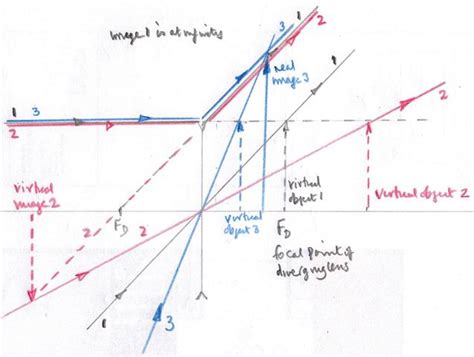 image 1 is at infinity
3
2
1
1 3
2
real
image 3
1
2
virtual
image 2
virtual
object 1
virtual object 2
2
2
F_D
virtual
object 3
F_D
focal point of
diverging lens
1
3